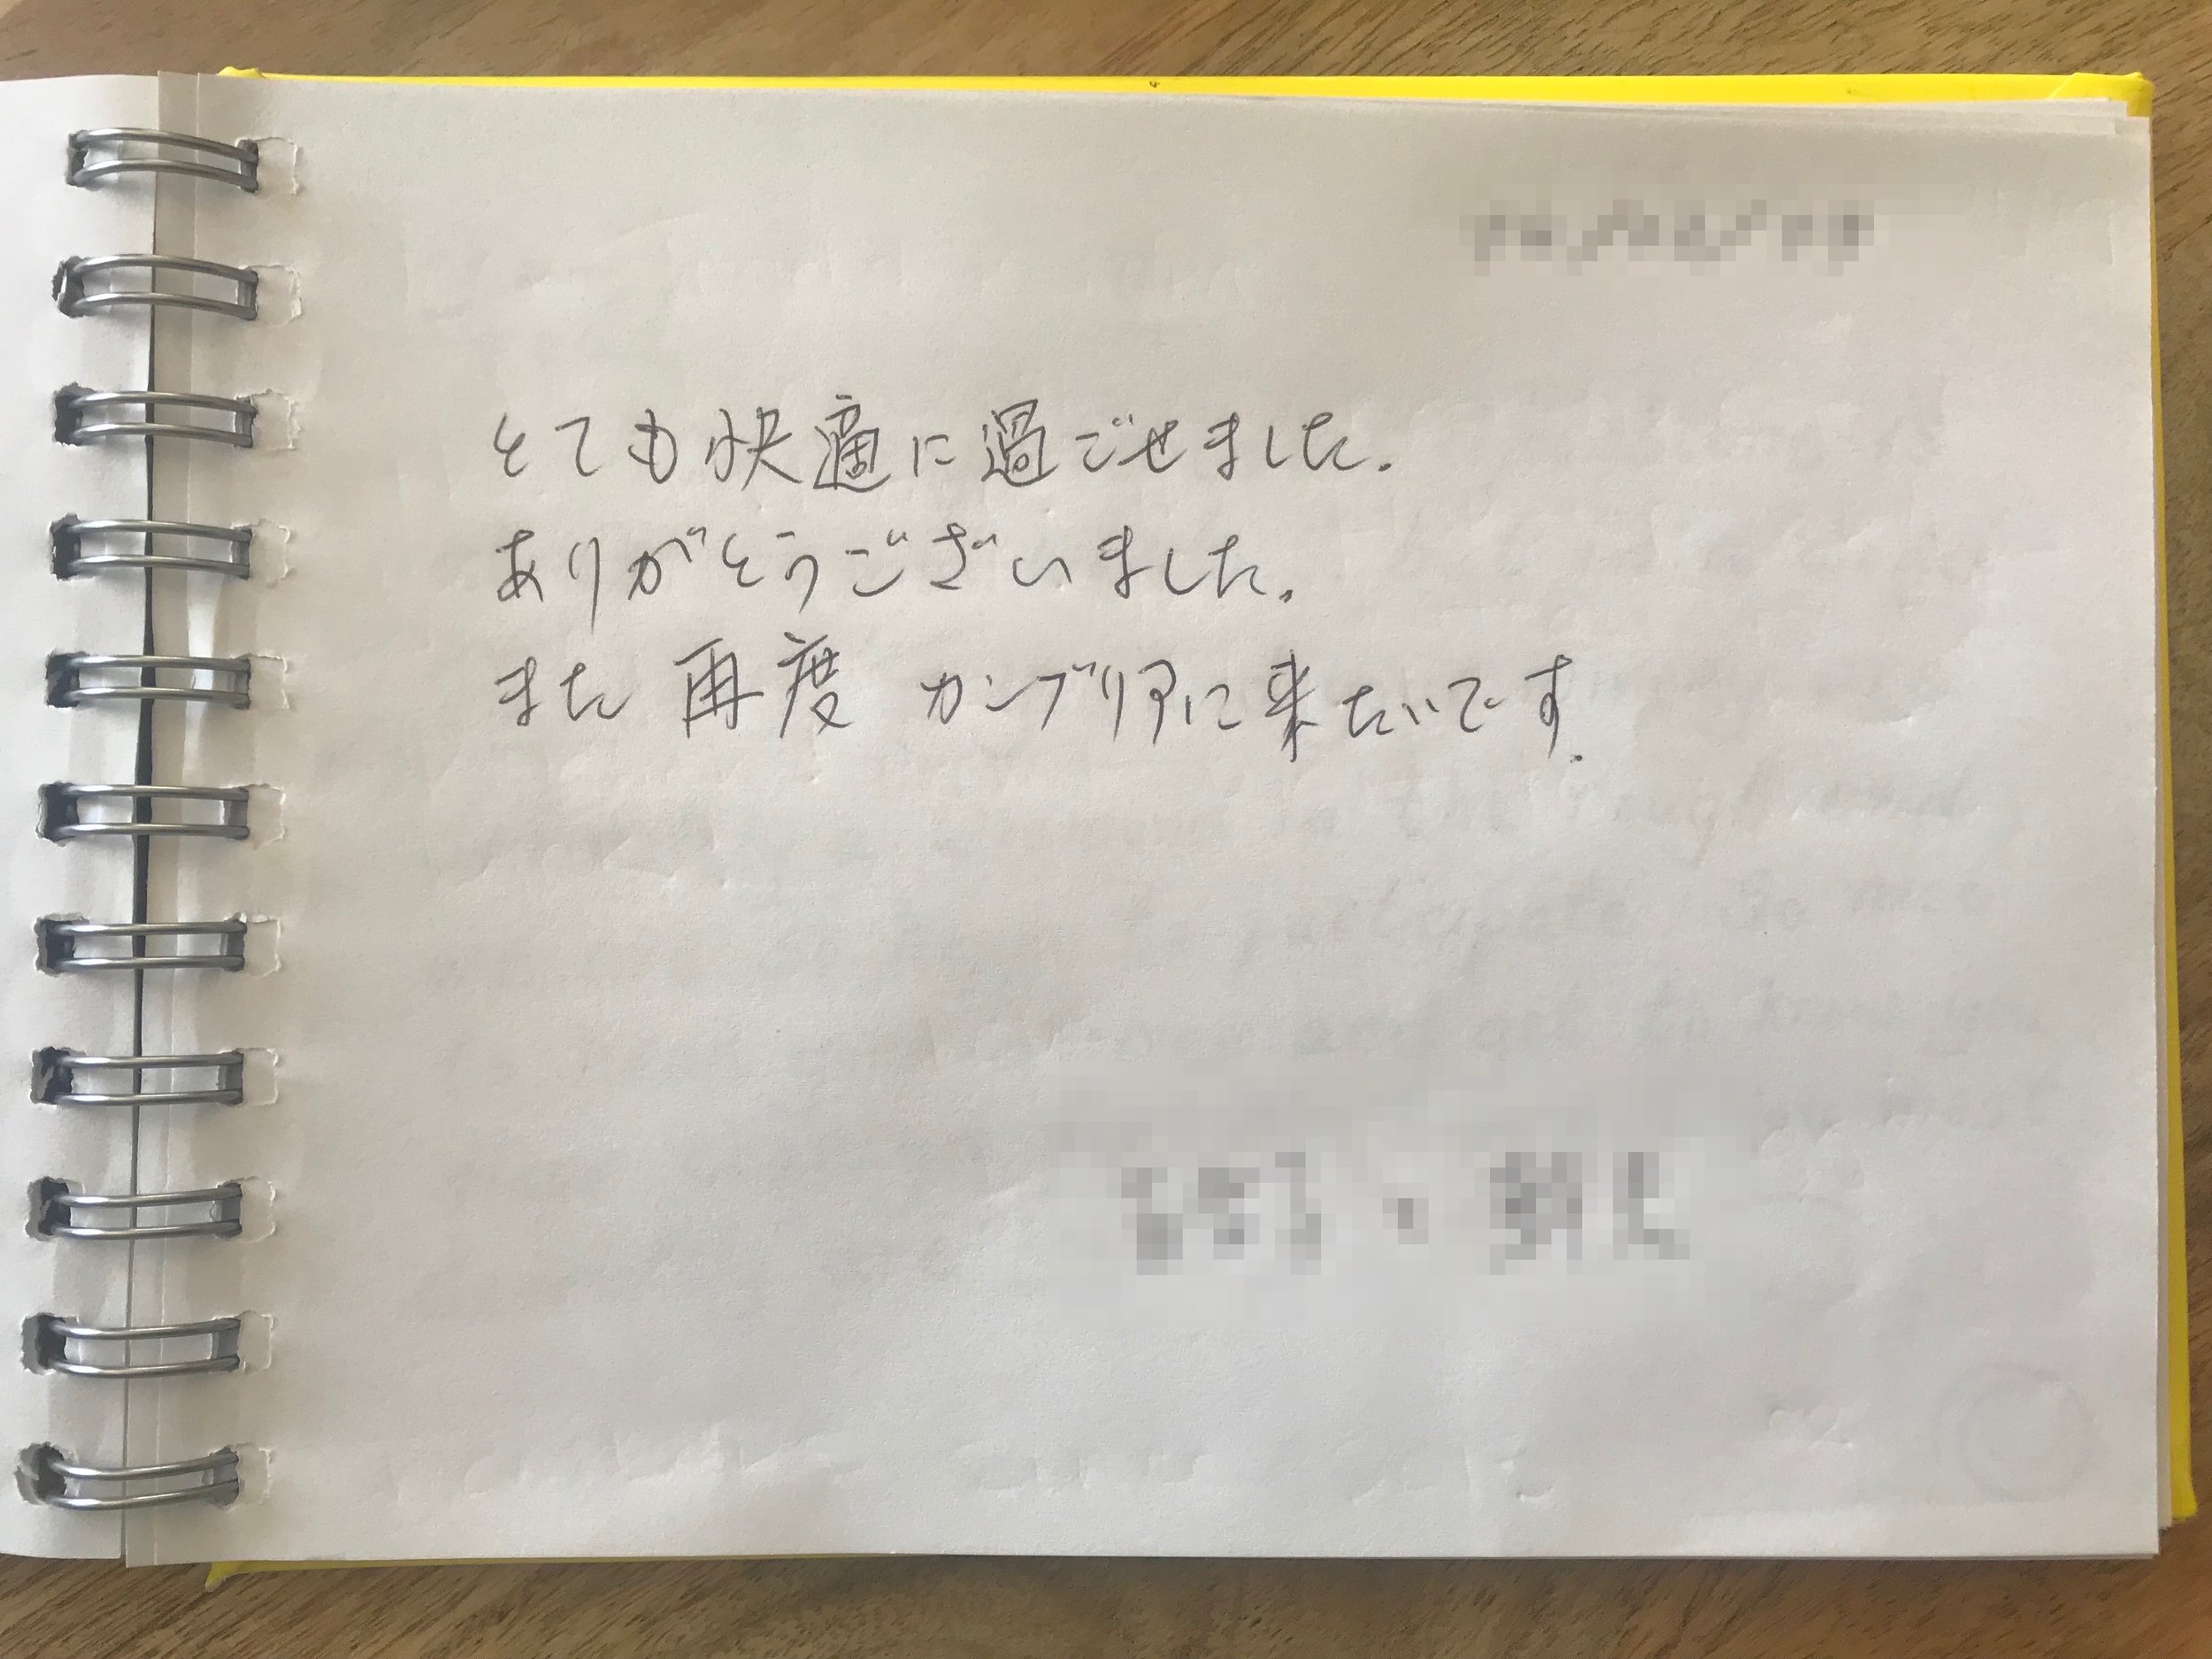 とても快適に過ごせました.
ありがとうございました.
また 再度 カンブリアに来たいです.